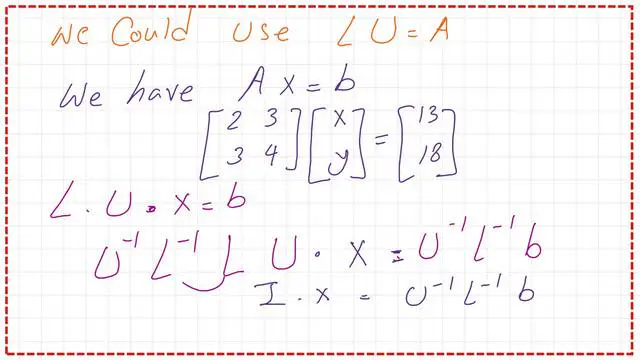 We Could Use L U = A
We have A x = b
[2 3
3 4] [x
y] = [13
18]
L . U . x = b
U⁻¹ L⁻¹ L U . x = U⁻¹ L⁻¹ b
I . x = U⁻¹ L⁻¹ b